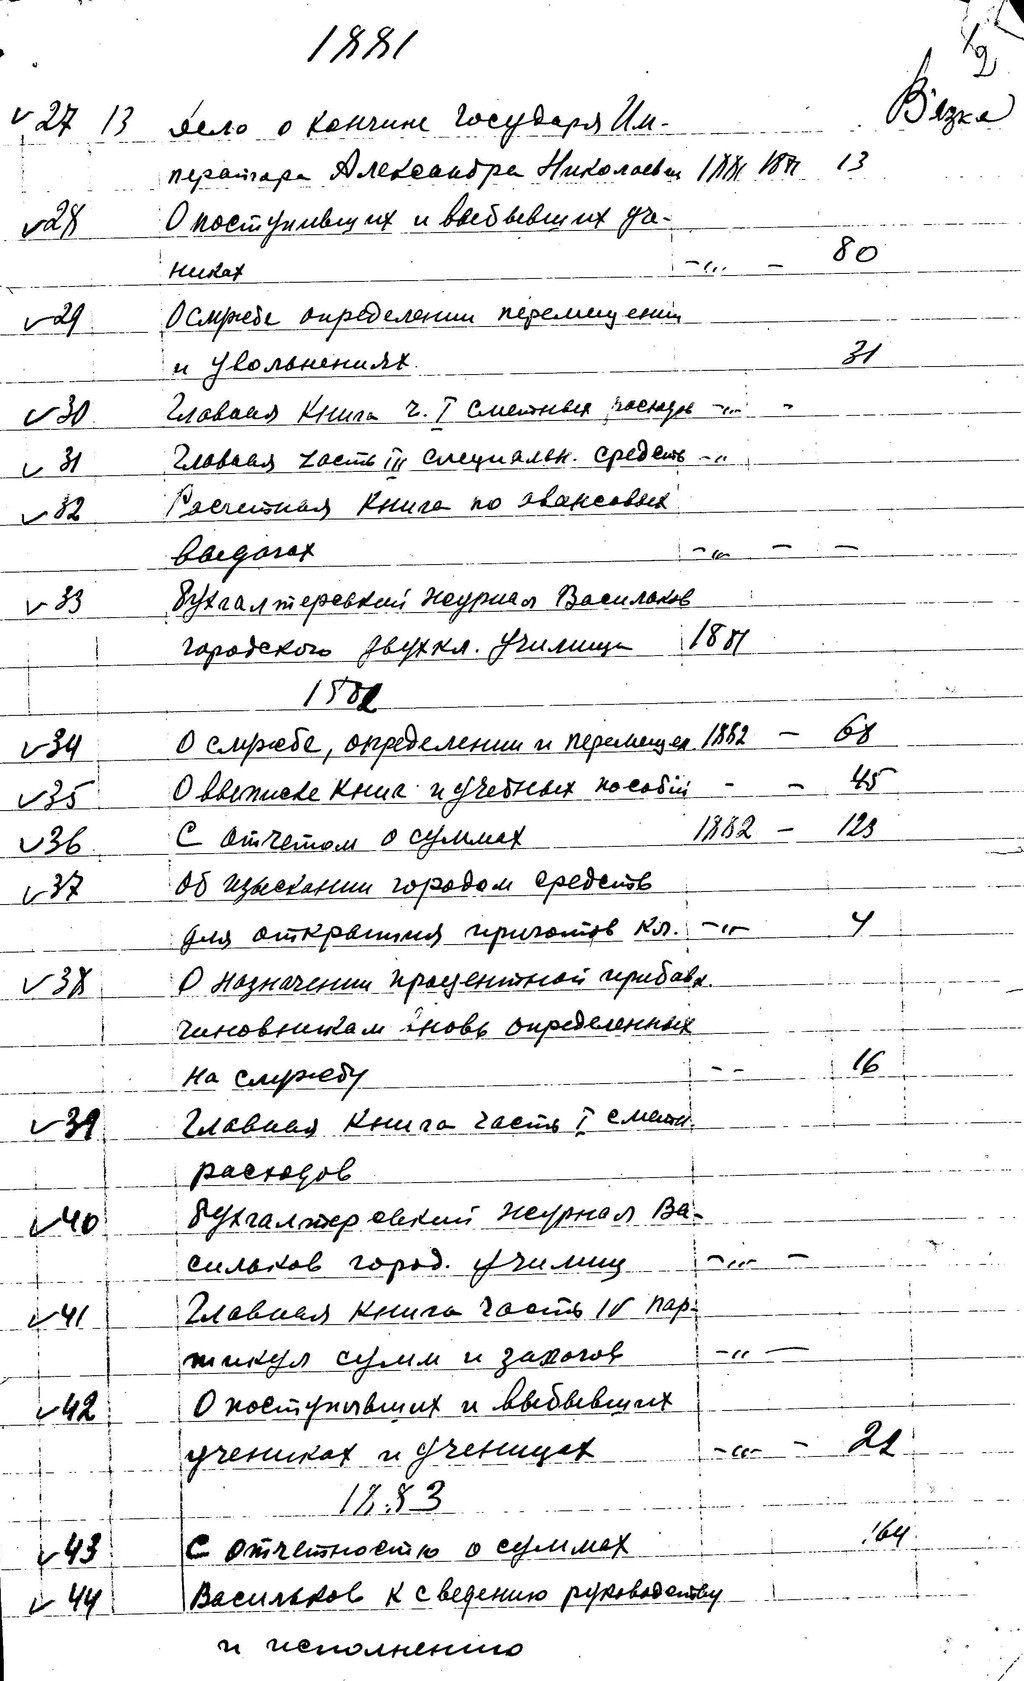 1881
12
В'язка
27 13 Дело о кончине Государя Им-
ператора Александра Николаевич 1881 1881 13
28 О поступивших и выбывших уче-
никах -„- - 80
29 О службе определении перемещении
и увольнениях 31
30 Главная Книга ч. I сметных расходов -„- -
31 Главная часть III специальн. средств -„-
32 Расчетная Книга по авансовых
выдачах -„- - -
33 Бухгалтерский журнал Васильков
городского двухкл. училища 1881
1882
34 О службе, определении и перемещен 1882 - 68
35 О выписке книг и учебных пособий - - 45
36 С отчетом о суммах 1882 - 123
37 Об изыскании городом средств
для открытия приготов кл. -„- 4
38 О назначении процентной прибавк.
чиновникам вновь определенных
на службу - - 16
39 Главная Книга часть I сметн.
расходов
40 Бухгалтерский журнал Ва-
сильков город. училищ -„- -
41 Главная книга часть IV пар-
тикул сумм и залогов -„- -
42 О поступивших и выбывших
учениках и ученицах -„- - 22
1883
43 С отчетностью о суммах 164
44 Васильков к сведению руководству
и исполнению